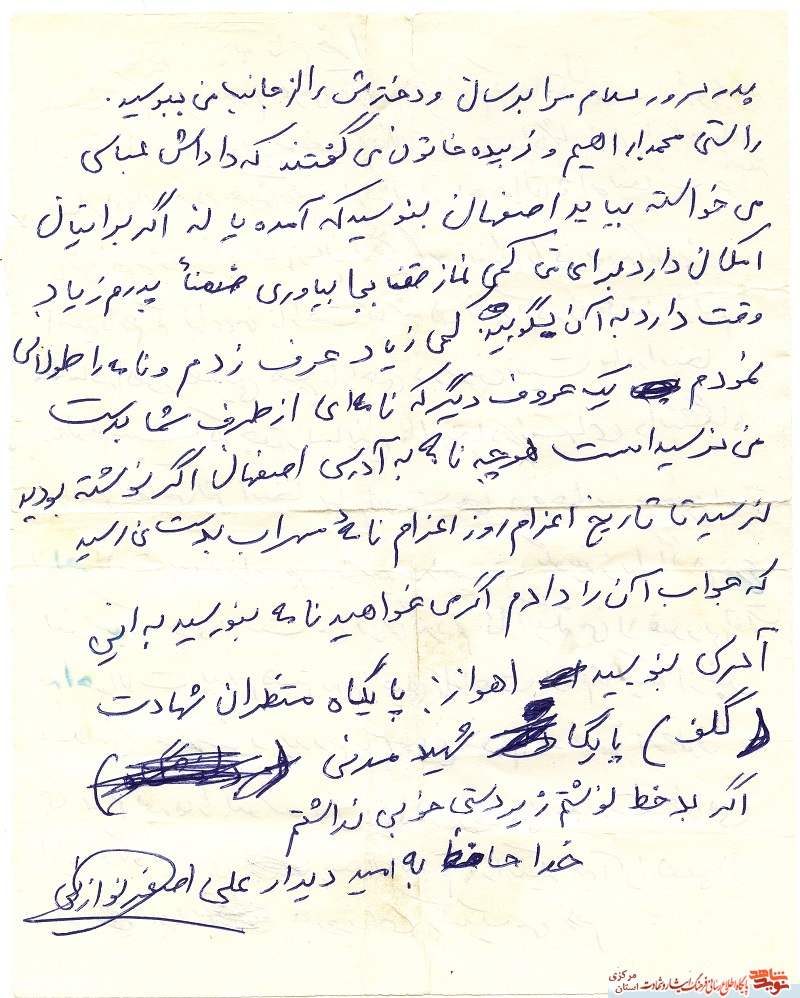 پدر سرور سلام مرا برسان و دخترش را از جانب من ببوسید.
راستی محمد ابراهیم و زبیده خاتون می گفتند که داداش عباسی
می خواسته بیاید اصفهان بنویسید که آمده یا نه اگر برایتان
امکان دارد برای من کمی نماز قضا بجا بیاوری ضمنأ پدرم زیاد
وقت دارد به آن بگویید. کمی زیاد حرف زدم و نامه را طولانی
نمودم یک حروف دیگر که نامه ای از طرف شما بدست
من نرسیده است هرچه نامه به آدرس اصفهان اگر نوشته بودید
نرسید تا تاریخ اعزام روز اعزام نامهٔ سهراب بدستم رسید
که جواب آن را دادم اگر می خواهید نامه بنویسید به این
آدرس بنویسید اهواز: پایگاه منتظران شهادت
(گلف) پایگاه شهید مدنی
اگر بد خط نوشتم زیر دستی خوبی نداشتم
خدا حافظ به امید دیدار علی اصغر
نوید شاهد پایگاه اطلاع رسانی فرهنگ ایثار و شهادت استان مرکزی